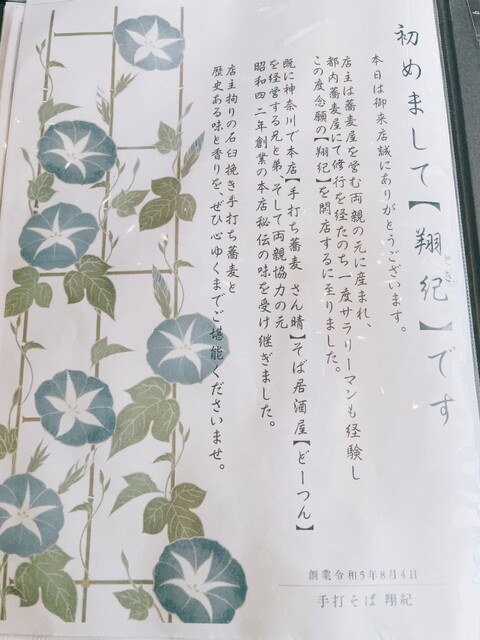 初めまして【翔紀】です
とき
本日は御来店誠にありがとうございます。
店主は蕎麦屋を営む両親の元に産まれ、
都内蕎麦屋にて修行を経たのち一度サラリーマンも経験し
この度念願の【翔紀】を開店するに至りました。
既に神奈川で本店【手打ち蕎麦 さん晴】そば居酒屋【どーつん】
を経営する兄と弟、そして両親協力の元
昭和四二年創業の本店秘伝の味を受け継ぎました。
店主拘りの石臼挽き手打ち蕎麦と
歴史ある味と香りを、ぜひ心ゆくまでご堪能くださいませ。
創業令和5年8月4日
手打そば 翔紀